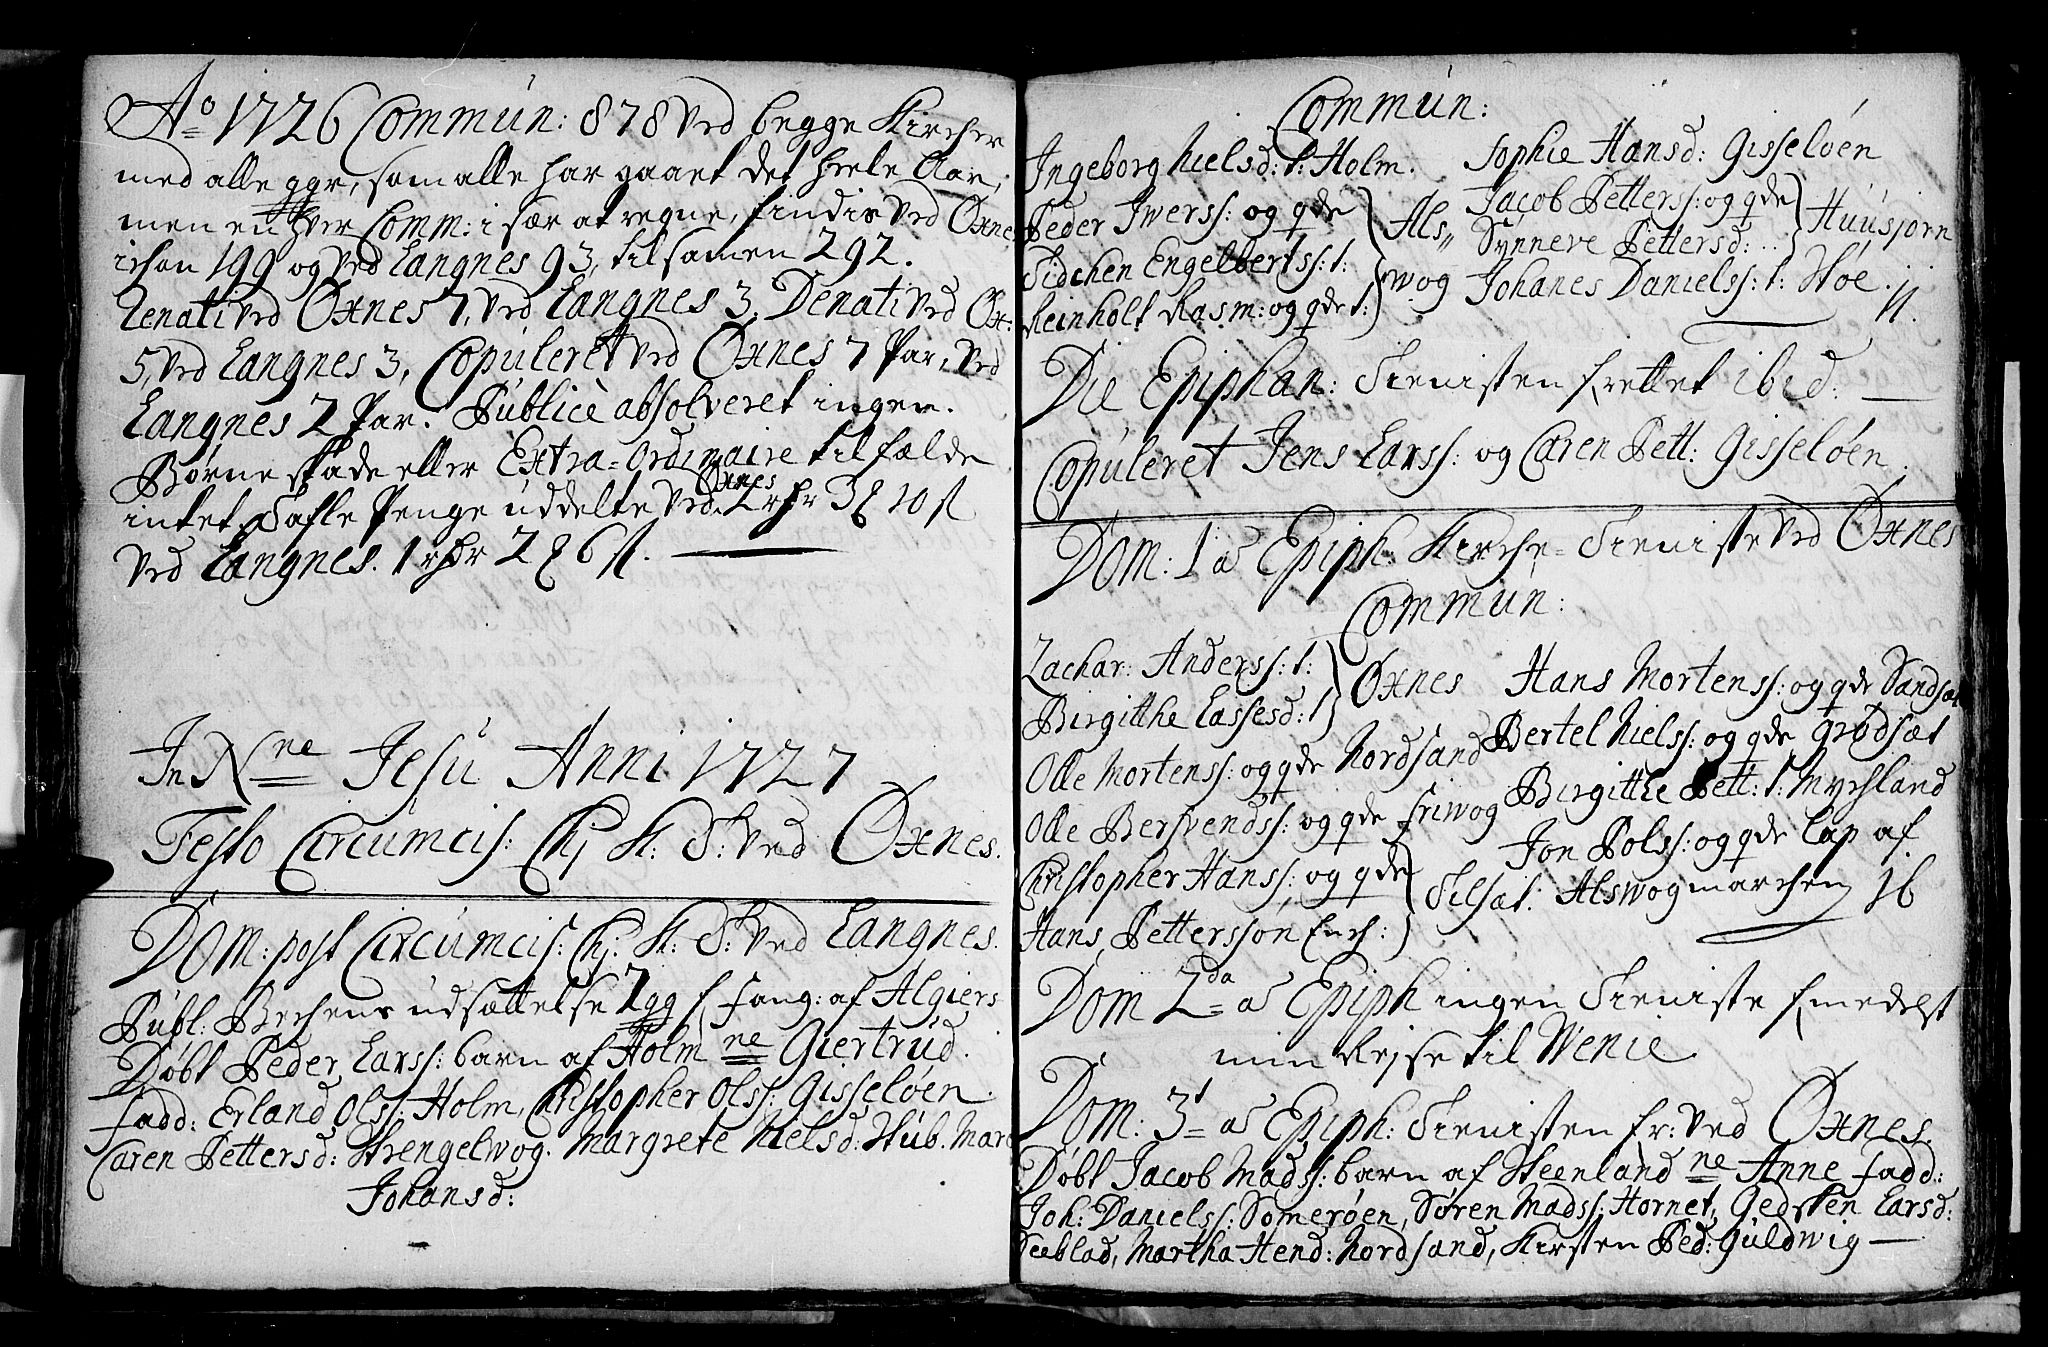 Ao 1726 Commun: 878 ved begge Kircher
med alle ggr, som alle har gaaet det heele Aar,
men en hver Comm: i sær at regne, findis ved Øxnes
ickon 199 og ved Langnes 93, tilsamen 292.
Renati ved Øxnes 7, ved Langnes 3, Denati ved Øx:
5, ved Langnes 3, Copuleret ved Øxnes 7 Par, ved
Langnes 2 Par. Publicè absolveret ingen.
Børne skade eller Extra-Ordinaire tilfælde
intet. Tafle Penge uddelte ved Øxnes 2 rdr 3 10 s
ved Langnes. 1 rdr 2 6 s.
In Nne Jesu Anni 1727
Festo Circumcis: Chj K: T: ved Øxnes.
Dom: post Circumcis: Chj: K: T: ved Langnes.
Publ: Bechens udsættelse 2 gg f fang: af Algiers
Døbt Peder Larss: barn af Holm ne Giertrud.
fadd: Erland Olss: Holm, Christopher Olss: Gisseløen.
Caren Pettersd: Strengelwog. Margrete Nielsd: Hub. Mare
Johansd:
Commun:
Ingeborg Nielsd: t: Holm.
Peder Iwerss: og qde
Tidchen Engelbertss: t:
Reinholt Rasm: og qde t:
Als„
wog
Sophie Hansd: Gisseløen
Jacob Petterss: og qde
Synneve Pettersd:
Huusjorn
Johanes Danielss: t: Høe. 11.
Die Epiphan: Tienisten frettet ibid:
Copuleret Jens Larss: og Caren Pett: Gisseløen.
Dom: 1 a Epiph: Kirche-Tieniste ved Øxnes
Commun:
Zachar: Anderss: t:
Birgitthe Lassesd: t
Øxnes
Olle Mortenss: og qde Nordsand
Olle Bersvendss: og qde Friwog
Christopher Hanss: og qde
Hans Petterssøn Ench:
Tilsæt:
Hans Mortenss: og qde Sandsæt
Bertel Nielss: og qde Grødsæt
Birgitthe Pett: t: Myhsland
Jon Polss: og qde Lap af
Alswogmarchen 16
Dom 2da a Epiph ingen Tieniste fmedelst
min Rejse til Wenie
Dom: 3t a Epiph: Tienisten fr: ved Øxnes.
Døbt Jacob Madss: barn af Steenland ne Anne fadd:
Joh: Danielss: Somerøen, Søren Madss: Hornet, Gedsken Larsd:
Seeblad, Martha Hend: Nordsand, Kirsten Ped: Guldwig